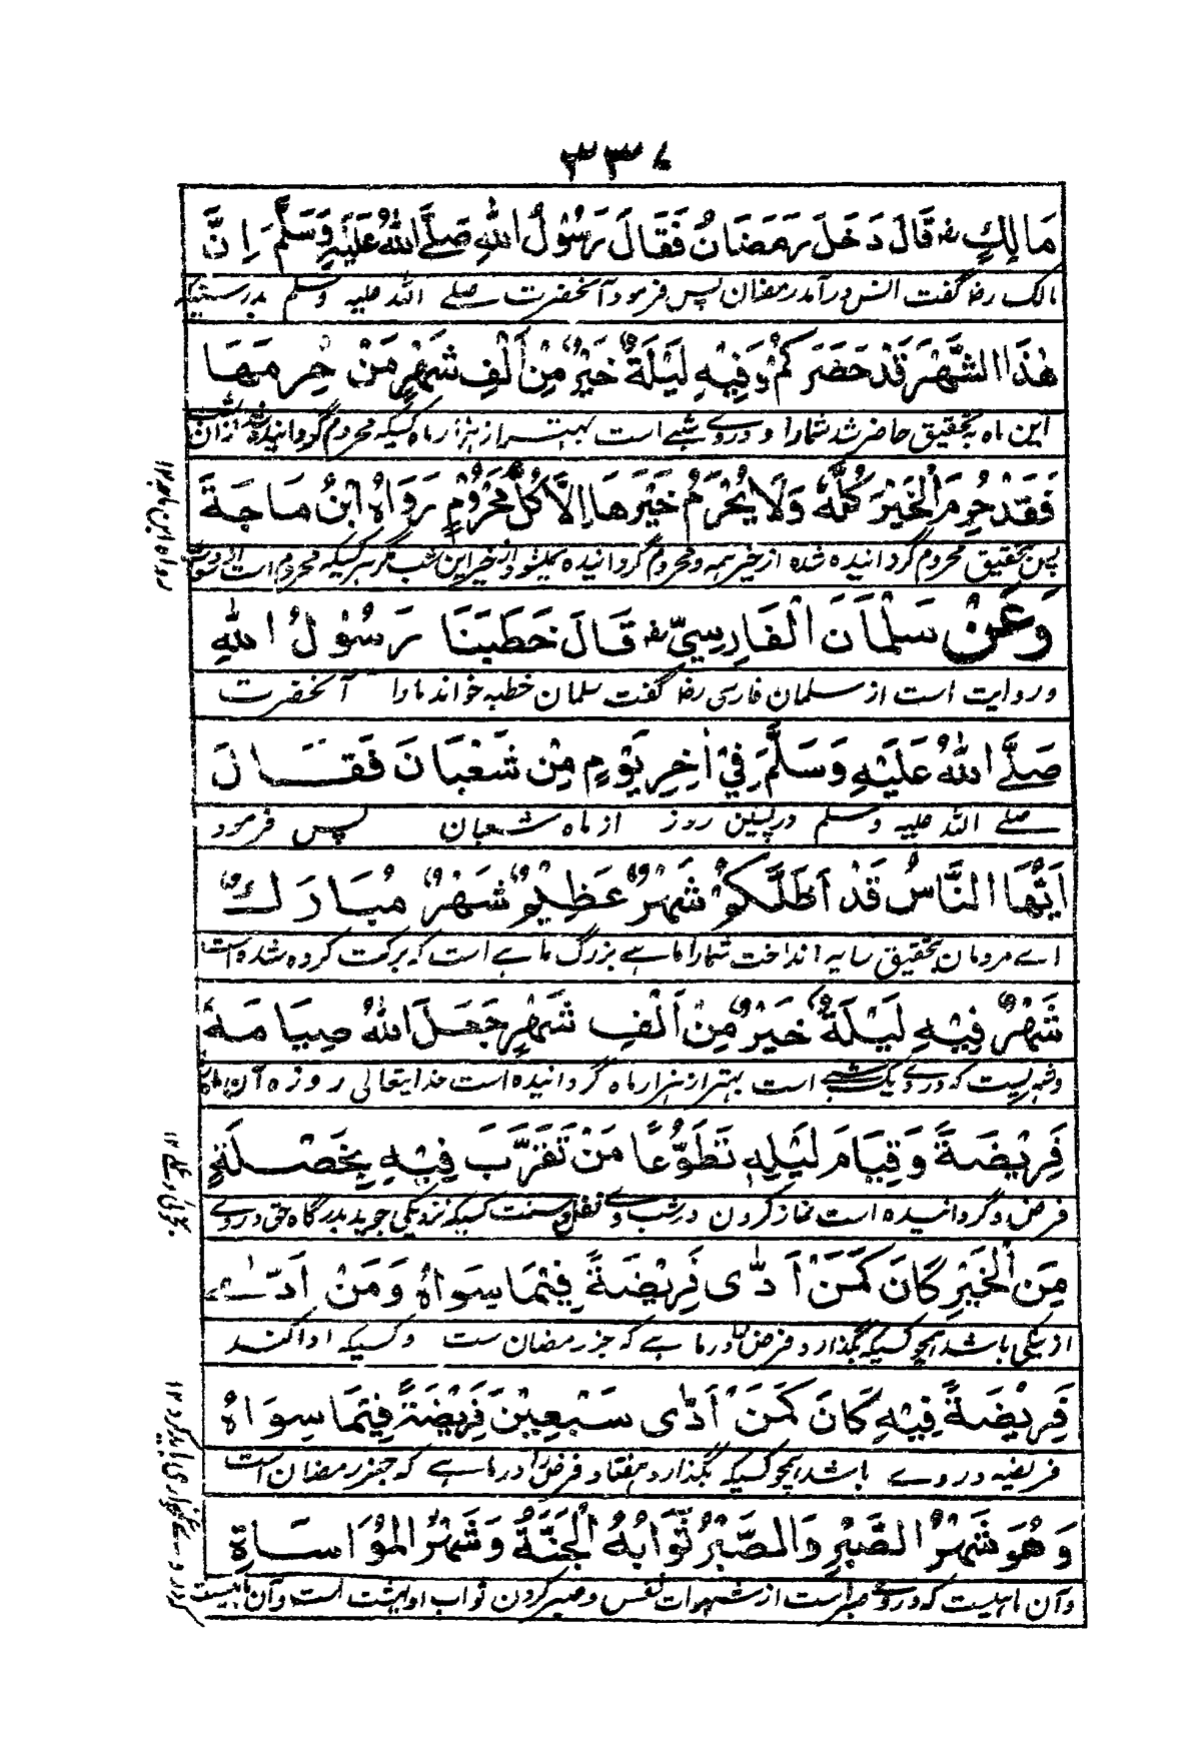 مَالِكٍ رض قَالَ دَخَلَ رَمَضَانُ فَقَالَ رَسُوْلُ اللهِ صَلَّے اللهُ عَلَيْهِ وَسَلَّمَ اِنَّ
مالک رضا گفت انس درآمد رمضان پس فرمود آنحضرت صلے اللہ علیہ وسلم بدرستیکہ
هٰذَا الشَّهْرَ قَدْ حَضَرَكُمْ وَفِيْهِ لَيْلَةٌ خَيْرٌ مِّنْ اَلْفِ شَهْرٍ مَنْ حُرِمَهَا
این ماہ بتحقیق حاضر شد شمارا و دروے شبے است بہتر از ہزار ماہ کسیکہ محروم گردانیدہ شد ازان
فَقَدْ حُرِمَ الْخَيْرَ كُلَّهٗ وَلَا يُحْرَمُ خَيْرَهَا اِلَّا كُلُّ مَحْرُوْمٍ رَوَاهُ ابْنُ مَاجَةَ
پس بتحقیق محروم گردانیدہ شدہ از خیر ہمہ و محروم گردانیدہ نمیشود از خیر این شب مگر ہر کسیکہ محروم است
وَعَنْ سَلْمَانَ الْفَارِسِيِّ رض قَالَ خَطَبَنَا رَسُوْلُ اللهِ
و روایت است از سلمان فارسی رضا گفت سلمان خطبہ خواند مارا آنحضرت
صَلَّے اللهُ عَلَيْهِ وَسَلَّمَ فِيْ اٰخِرِ يَوْمٍ مِّنْ شَعْبَانَ فَقَالَ
صلے اللہ علیہ وسلم در پسین روز از ماہ شعبان پس فرمود
اَيُّهَا النَّاسُ قَدْ اَظَلَّكُمْ شَهْرٌ عَظِيْمٌ شَهْرٌ مُبَارَكٌ
اے مردمان بتحقیق سایہ انداخت شمارا ماہے بزرگ ماہے است کہ برکت کردہ شدہ است
شَهْرٌ فِيْهِ لَيْلَةٌ خَيْرٌ مِّنْ اَلْفِ شَهْرٍ جَعَلَ اللهُ صِيَامَهٗ
کہ دروے یک شبے است بہتر از ہزار ماہ گردانیدہ است خدایتعالی روزہ آن
فَرِيْضَةً وَقِيَامَ لَيْلِهٖ تَطَوُّعًا مَنْ تَقَرَّبَ فِيْهِ بِخَصْلَةٍ
فرض و گردانیدہ است نماز کردن در شب وے نفل و سنت کسیکہ نزدیکی جوید بدرگاہ حق دروے
مِنَ الْخَيْرِ كَانَ كَمَنْ اَدّٰى فَرِيْضَةً فِيْمَا سِوَاهُ وَمَنْ اَدّٰے
از نیکی باشد ہمچو کسیکہ بگذارد فرض را درماہے کہ جز رمضان ست وکسیکہ ادا کند
فَرِيْضَةً فِيْهِ كَانَ كَمَنْ اَدّٰى سَبْعِيْنَ فَرِيْضَةً فِيْمَا سِوَاهُ
فریضہ دروے باشد ہمچو کسیکہ بگذارد ہفتاد فرض را درماہے کہ جز رمضان است
وَهُوَ شَهْرُ الصَّبْرِ وَالصَّبْرُ ثَوَابُهُ الْجَنَّةُ وَشَهْرُ الْمُوَاسَاةِ
وآن ماہیست کہ دروے صبر است از شہوات نفس و صبر کردن ثواب او بہشت است وآن ماہیست
رواہ ابن ماجہ ۱۲